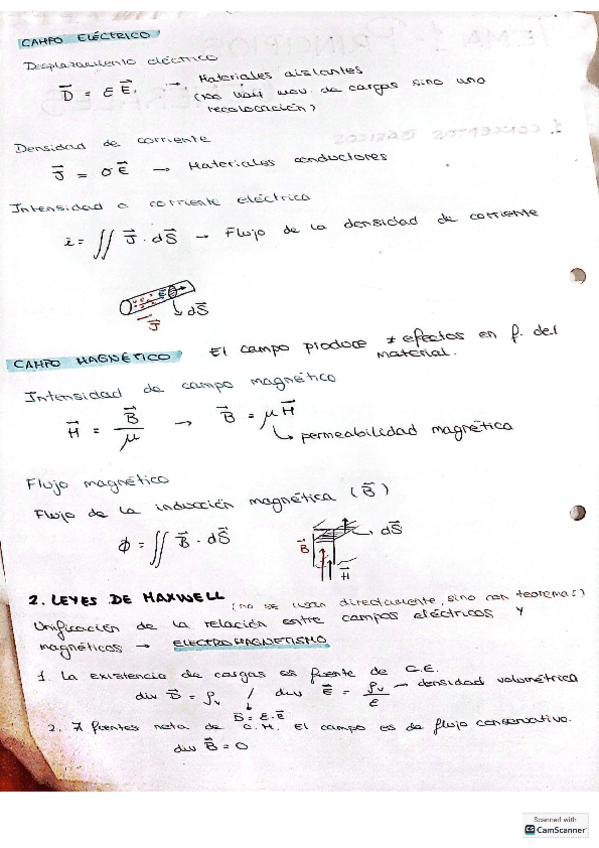 CAMPO ELÉCTRICO
Desplazamiento eléctrico
D⃗ = ε E⃗. → Materiales aislantes
(no hay mov. de cargas sino una
recolocación)
Densidad de corriente
J⃗ = σ E⃗ → Materiales conductores
Intensidad o corriente eléctrica
i = ∬ J⃗ · dS⃗ → Flujo de la densidad de corriente
E⃗
dS⃗
J⃗
CAMPO MAGNÉTICO El campo produce ≠ efectos en f. del
material.
Intensidad de campo magnético
H⃗ = B⃗/μ → B⃗ = μ H⃗
permeabilidad magnética
Flujo magnético
Flujo de la inducción magnética (B⃗)
ϕ = ∬ B⃗ · dS⃗
dS⃗
B⃗
H⃗
2. LEYES DE MAXWELL (no se usan directamente, sino con teoremas)
Unificación de la relación entre campos eléctricos y
magnéticos → ELECTROMAGNETISMO
1. La existencia de cargas es fuente de C.E.
div D⃗ = ρv / div E⃗ = ρv/ε → densidad volumétrica
D⃗ = ε·E⃗
2. ∄ fuentes neta de C.M. El campo es de flujo conservativo.
div B⃗ = 0
Scanned with
CS CamScanner